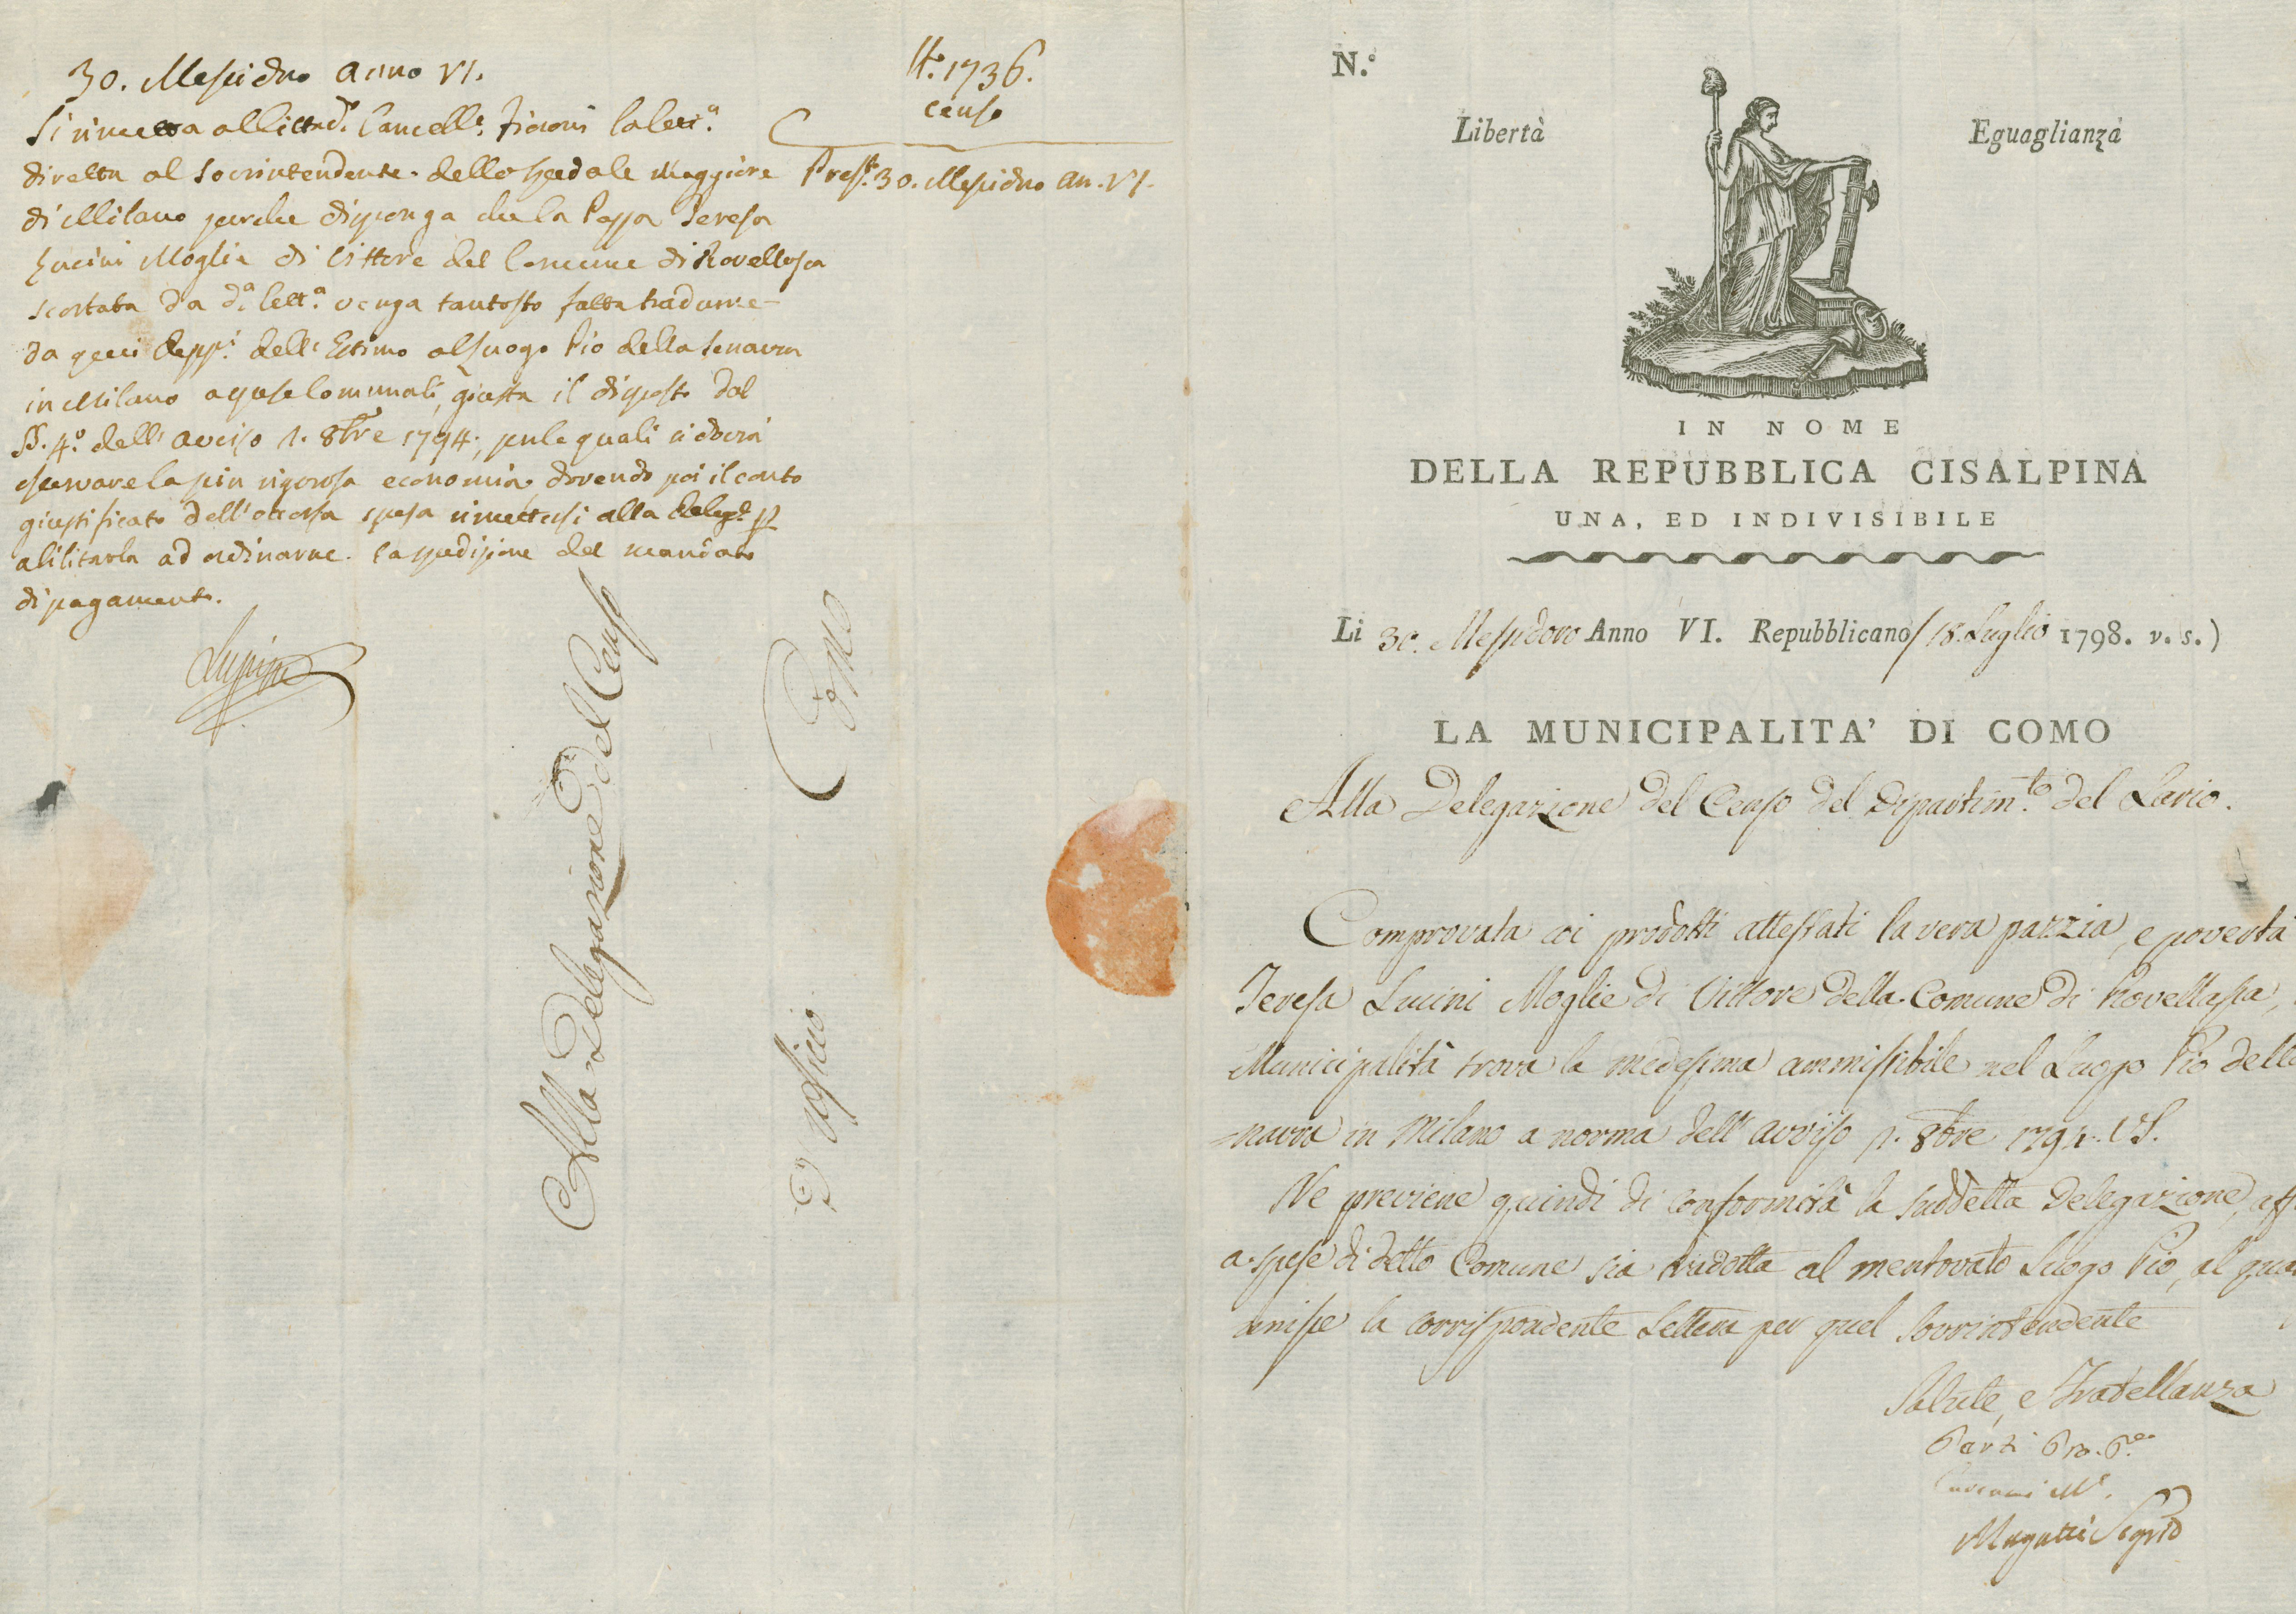 30. Messidro anno VI.
Si rimetta all Cittad.º Cancell.e la lett.a
diretta al Sovrintendente dello Spedale Maggiore
di Milano perche disponga che la Pazza Teresa
Lucini Moglie di Vittore del Comune di Rovellasca
scortata da d.a lett.a venga tantosto fatta tradurre
da quei Depp.i dell'Estimo al Luogo Pio della Senavra
in Milano a spese Comunali, giusta il disposto dal
§. 4.º dell'avviso 1. 8bre 1794, per le quali si dovrà
osservare la più rigorosa economia, dovendo poi il conto
giustificato dell'occorsa spesa rimettersi alla Deleg.e p
abilitarla ad ordinarne la spedizione del mandato
di pagamento.
N.º 1736.
Censo
Pres.t 30. Messidro an. VI.
Alla Delegazione del Censo
D'Officio
Como
N.º
Libertà
Eguaglianza
IN NOME
DELLA REPUBBLICA CISALPINA
UNA, ED INDIVISIBILE
Li 30. Messidoro Anno VI. Repubblicano (18. Luglio 1798. v. s.)
LA MUNICIPALITA' DI COMO
Alla Delegazione del Censo del Dipartim.to del Lario.
Comprovata coi prodotti attestati la vera pazzia, e povertà
Teresa Lucini Moglie di Vittore della Comune di Rovellasca,
Municipalità trova la medesima ammissibile nel Luogo Pio della
=navra in Milano a norma dell'avviso p. 8bre 1794. V.S.
Ne previene quindi di conformità la suddetta Delegazione, aff
a spese di detto Comune sia tradotta al mentovato Luogo Pio, al qua
annisse la corrispondente Lettera per quel Sovrintendente
Salute, e Fratellanza
Parzi Pro. P.e
M.e
Magatti Segrio